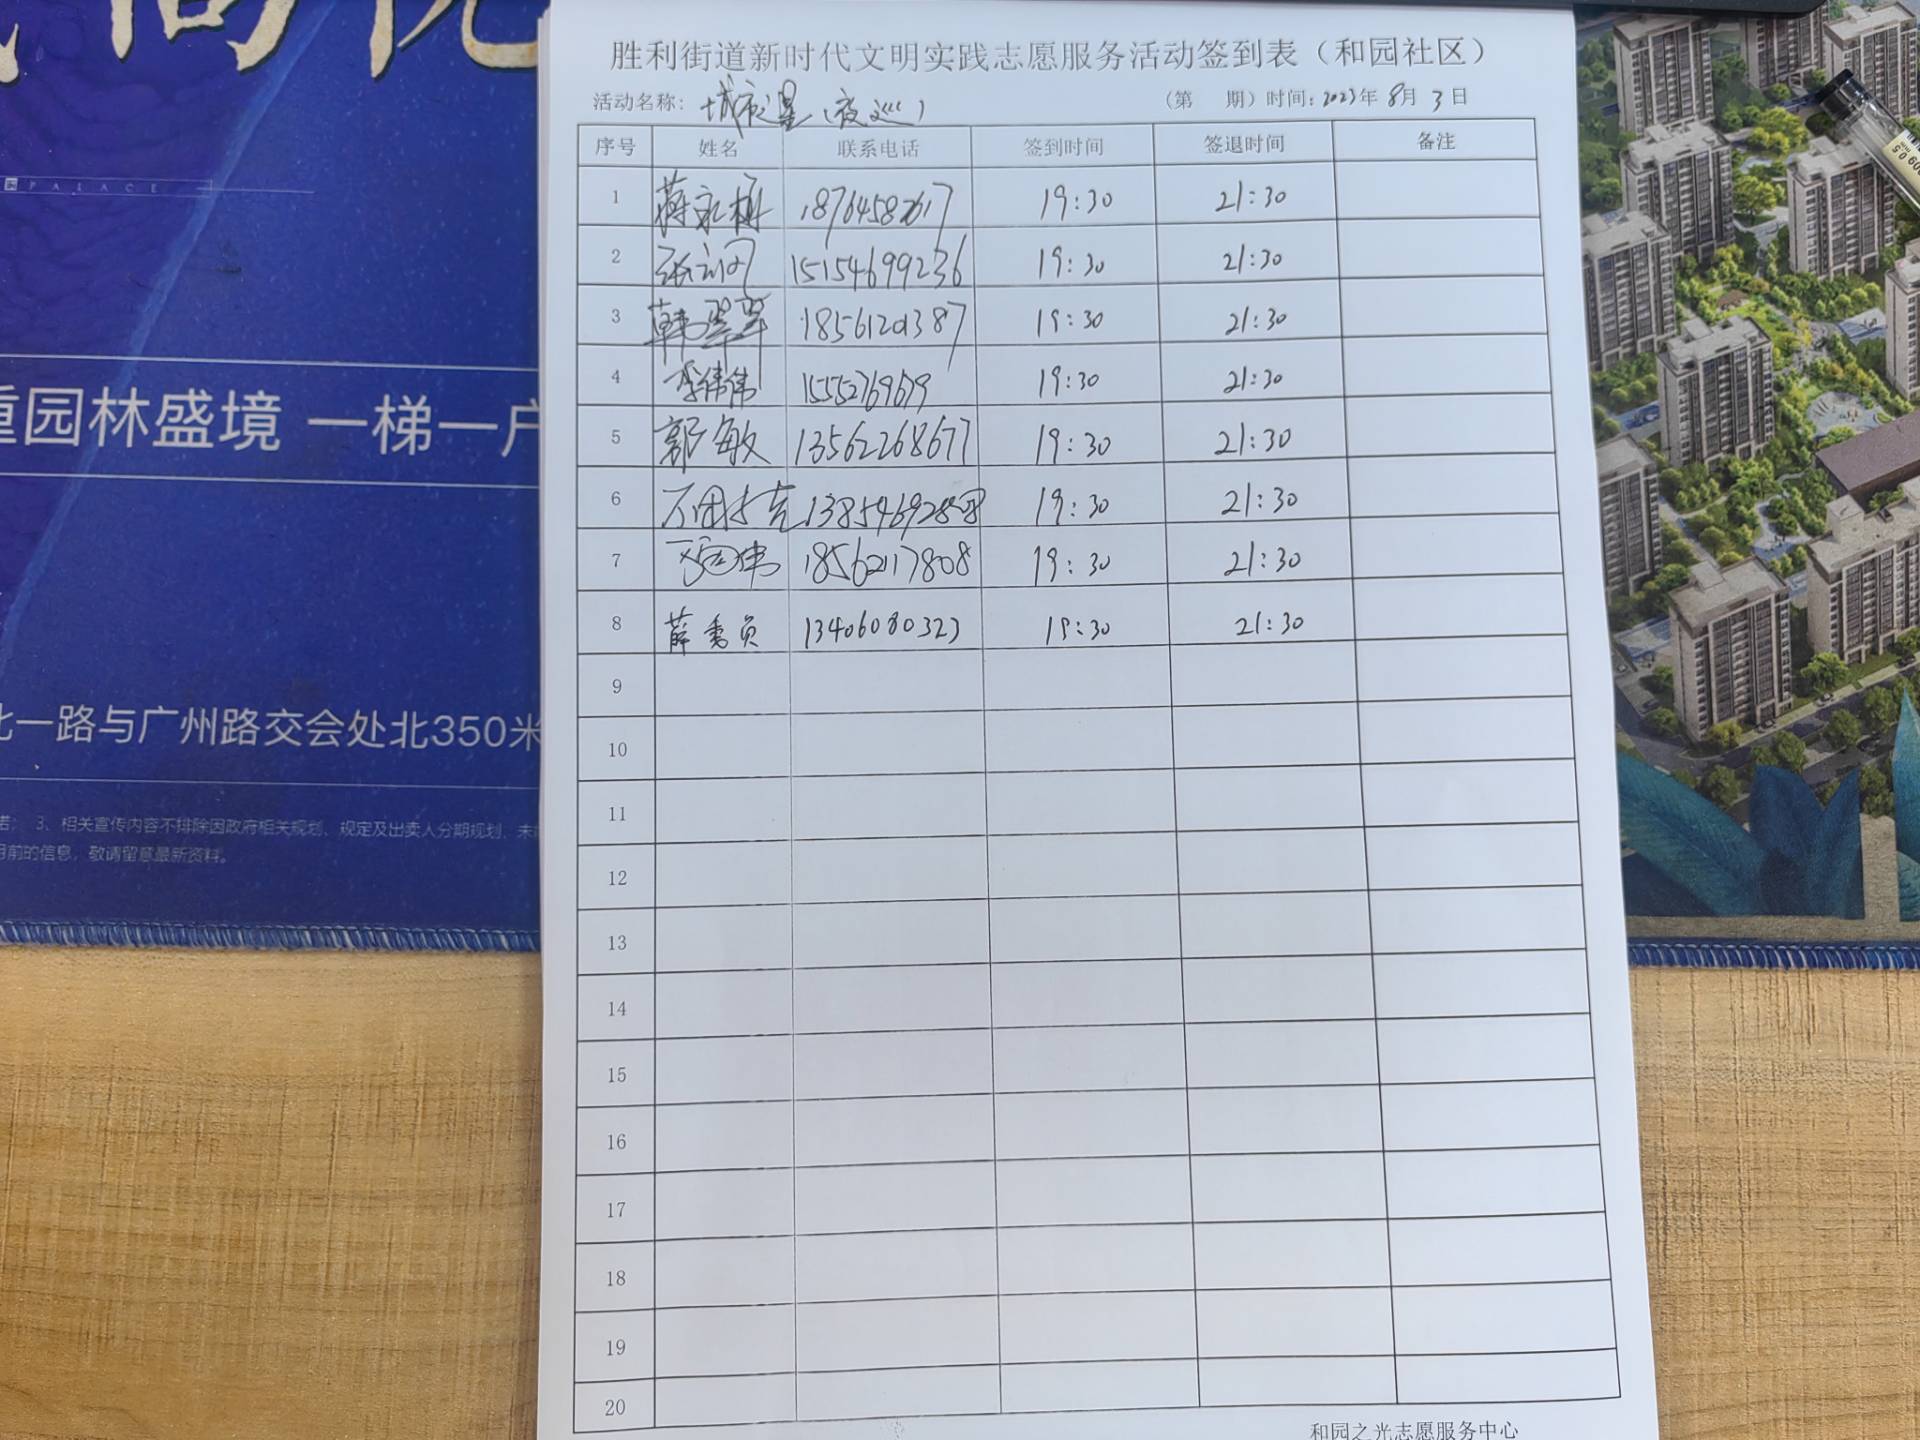 PALACE
重园林盛境 一梯一户
北一路与广州路交会处北350米
诺； 3、相关宣传内容不排除因政府相关规划、规定及出卖人分期规划、未
目前的信息，敬请留意最新资料。
胜利街道新时代文明实践志愿服务活动签到表（和园社区）
活动名称： 城市之星（夜巡） （第 期）时间：2023年 8月 3日
序号 姓名 联系电话 签到时间 签退时间 备注
1 蒋永梅 18764582617 19:30 21:30
2 15154699236 19:30 21:30
3 韩翠翠 18561201387 19:30 21:30
4 李伟伟 15552769679 19:30 21:30
5 郭敏 13562268677 19:30 21:30
6 19:30 21:30
7 18562117808 19:30 21:30
8 薛秀贞 13406080323 19:30 21:30
9
10
11
12
13
14
15
16
17
18
19
20
和园之光志愿服务中心